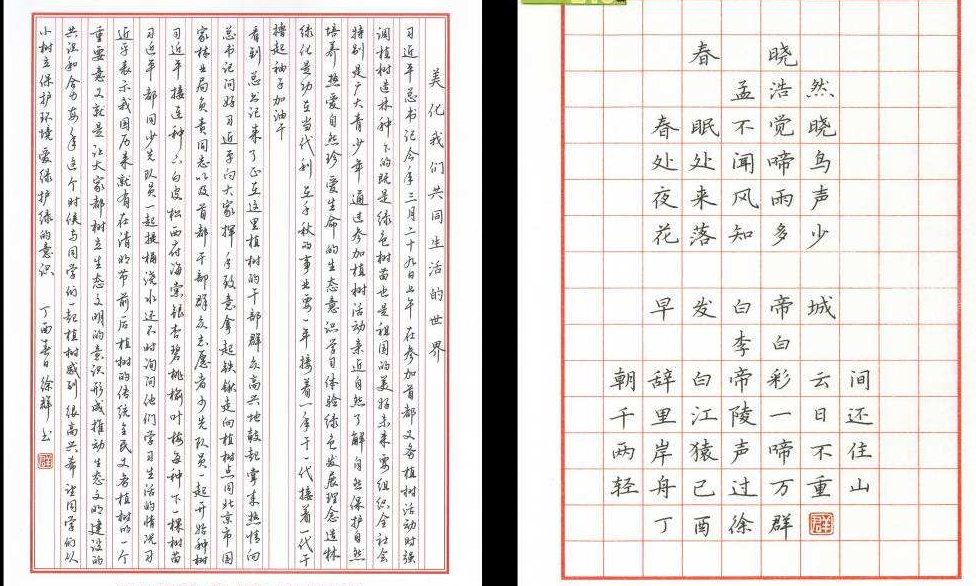 美化我们共同生活的世界
习近平总书记今年三月二十九日上午在参加首都义务植树活动时强
调植树造林种下的既是绿色树苗也是祖国的美好未来要组织全社会
特别是广大青少年通过参加植树活动亲近自然了解自然保护自然
培养热爱自然珍爱生命的生态意识学习体验绿色发展理念造林
绿化是功在当代利在千秋的事业要一年接着一年干一代接着一代干
撸起袖子加油干
看到总书记来了正在这里植树的干部群众高兴地鼓起掌来热情向
总书记问好习近平向大家挥手致意拿起铁锹走向植树点同北京市国
家林业局负责同志以及首都干部群众志愿者少先队员一起开始种树
习近平接连种六白皮松西府海棠银杏碧桃榆叶梅每种下一棵树苗
习近平都同少先队员一起提桶浇水还不时询问他们学习生活的情况习
近平表示我国历来就有在清明节前后植树的传统全民义务植树的一个
重要意义就是让大家都树立生态文明的意识形成推动生态文明建设的
共识和合力每年这个时候与同学们一起植树感到很高兴希望同学们从
小树立保护环境爱绿护绿的意识 丁酉春日徐群书
春晓
孟浩然
春眠不觉晓
处处闻啼鸟
夜来风雨声
花落知多少
早发白帝城
李白
朝辞白帝彩云间
千里江陵一日还
两岸猿声啼不住
轻舟已过万重山
丁酉徐群